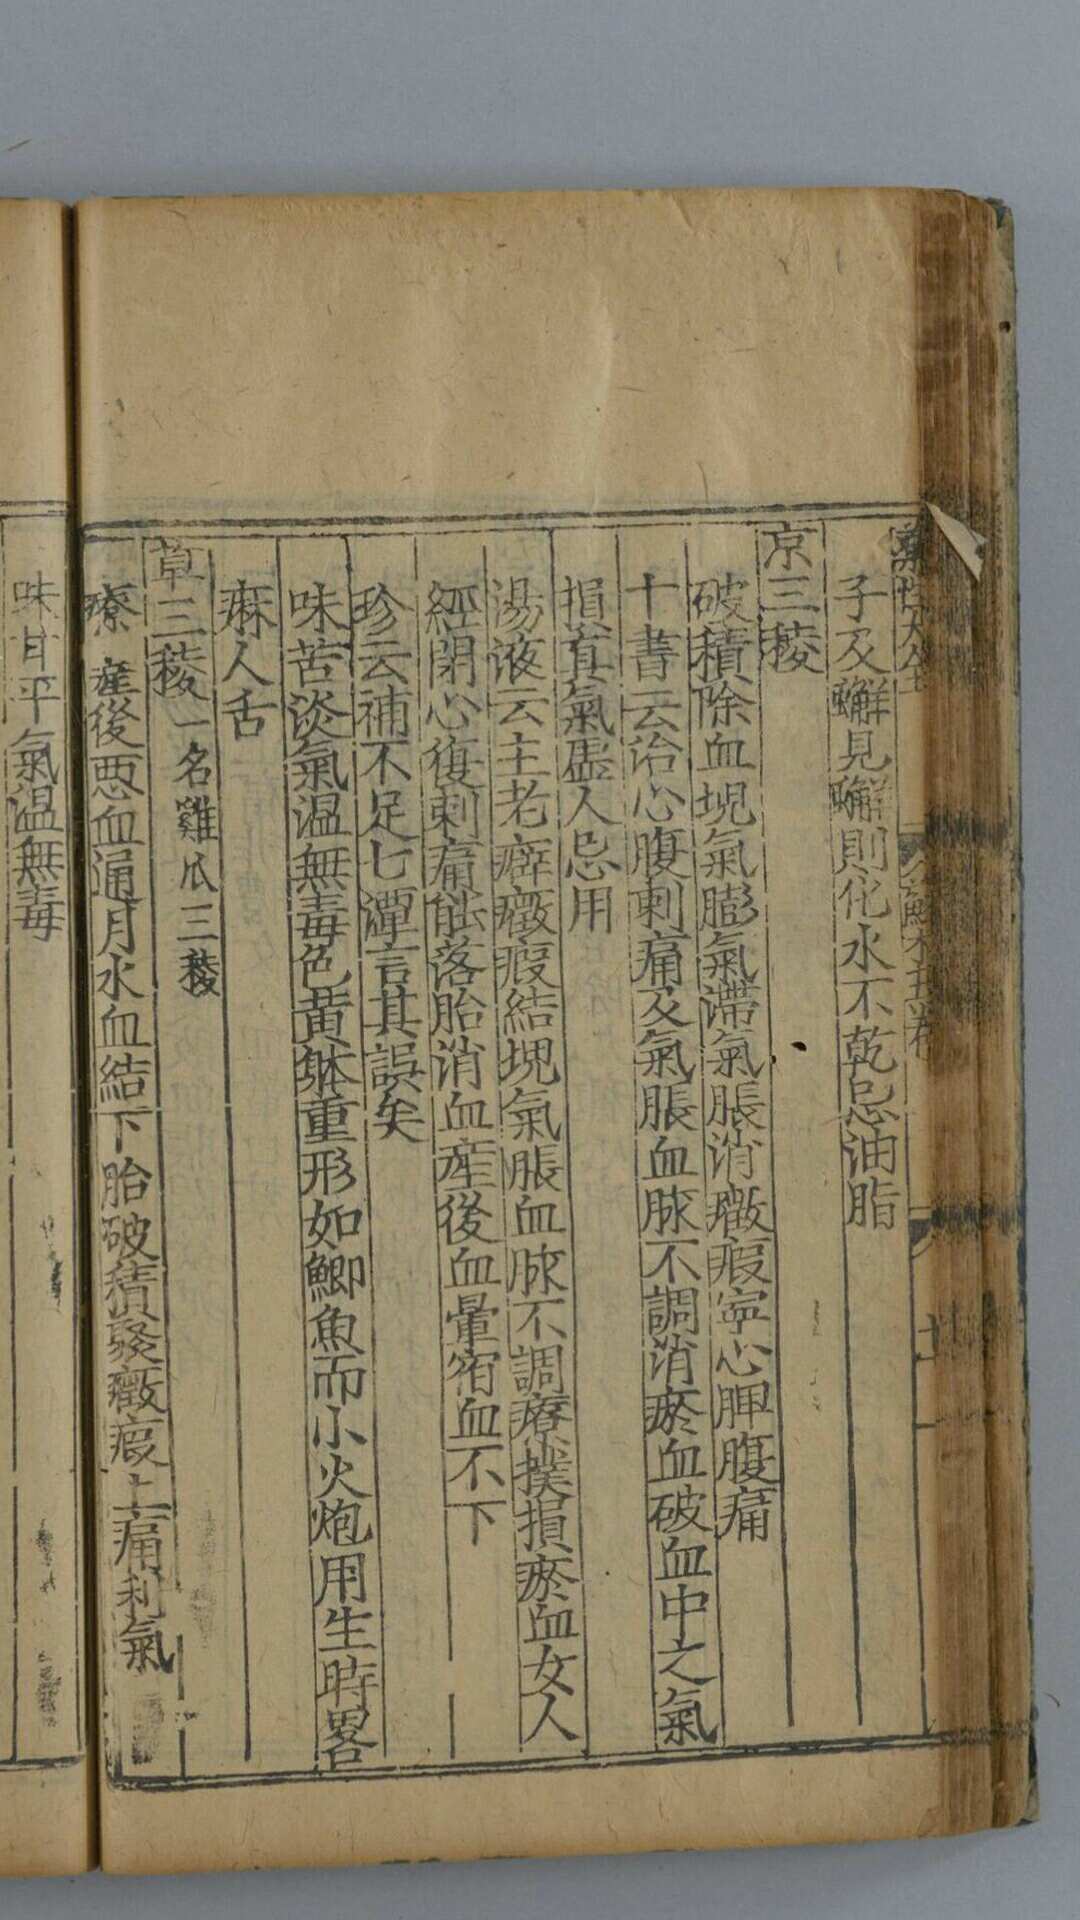 子及蠏見蠏則化水不乾忌油脂
京三稜
破積除血塊氣膨氣滯氣脹消癥瘕寧心脾腹痛
十書云治心腹刺痛及氣脹血脉不調消瘀血破血中之氣
損眞氣虛人忌用
湯液云主老癖癥瘕結塊氣脹血脉不調療撲損瘀血女人
經閉心復刺痛能落胎消血産後血暈宿血不下
珍云補不足七潭言其誤矣
味苦淡氣温無毒色黄躰重形如鯽魚而小火炮用生時畧
麻人舌
草三稜一名雞爪三稜
療産後惡血通月水血結下胎破積發癥瘕止痛利氣
味甘平氣温無毒